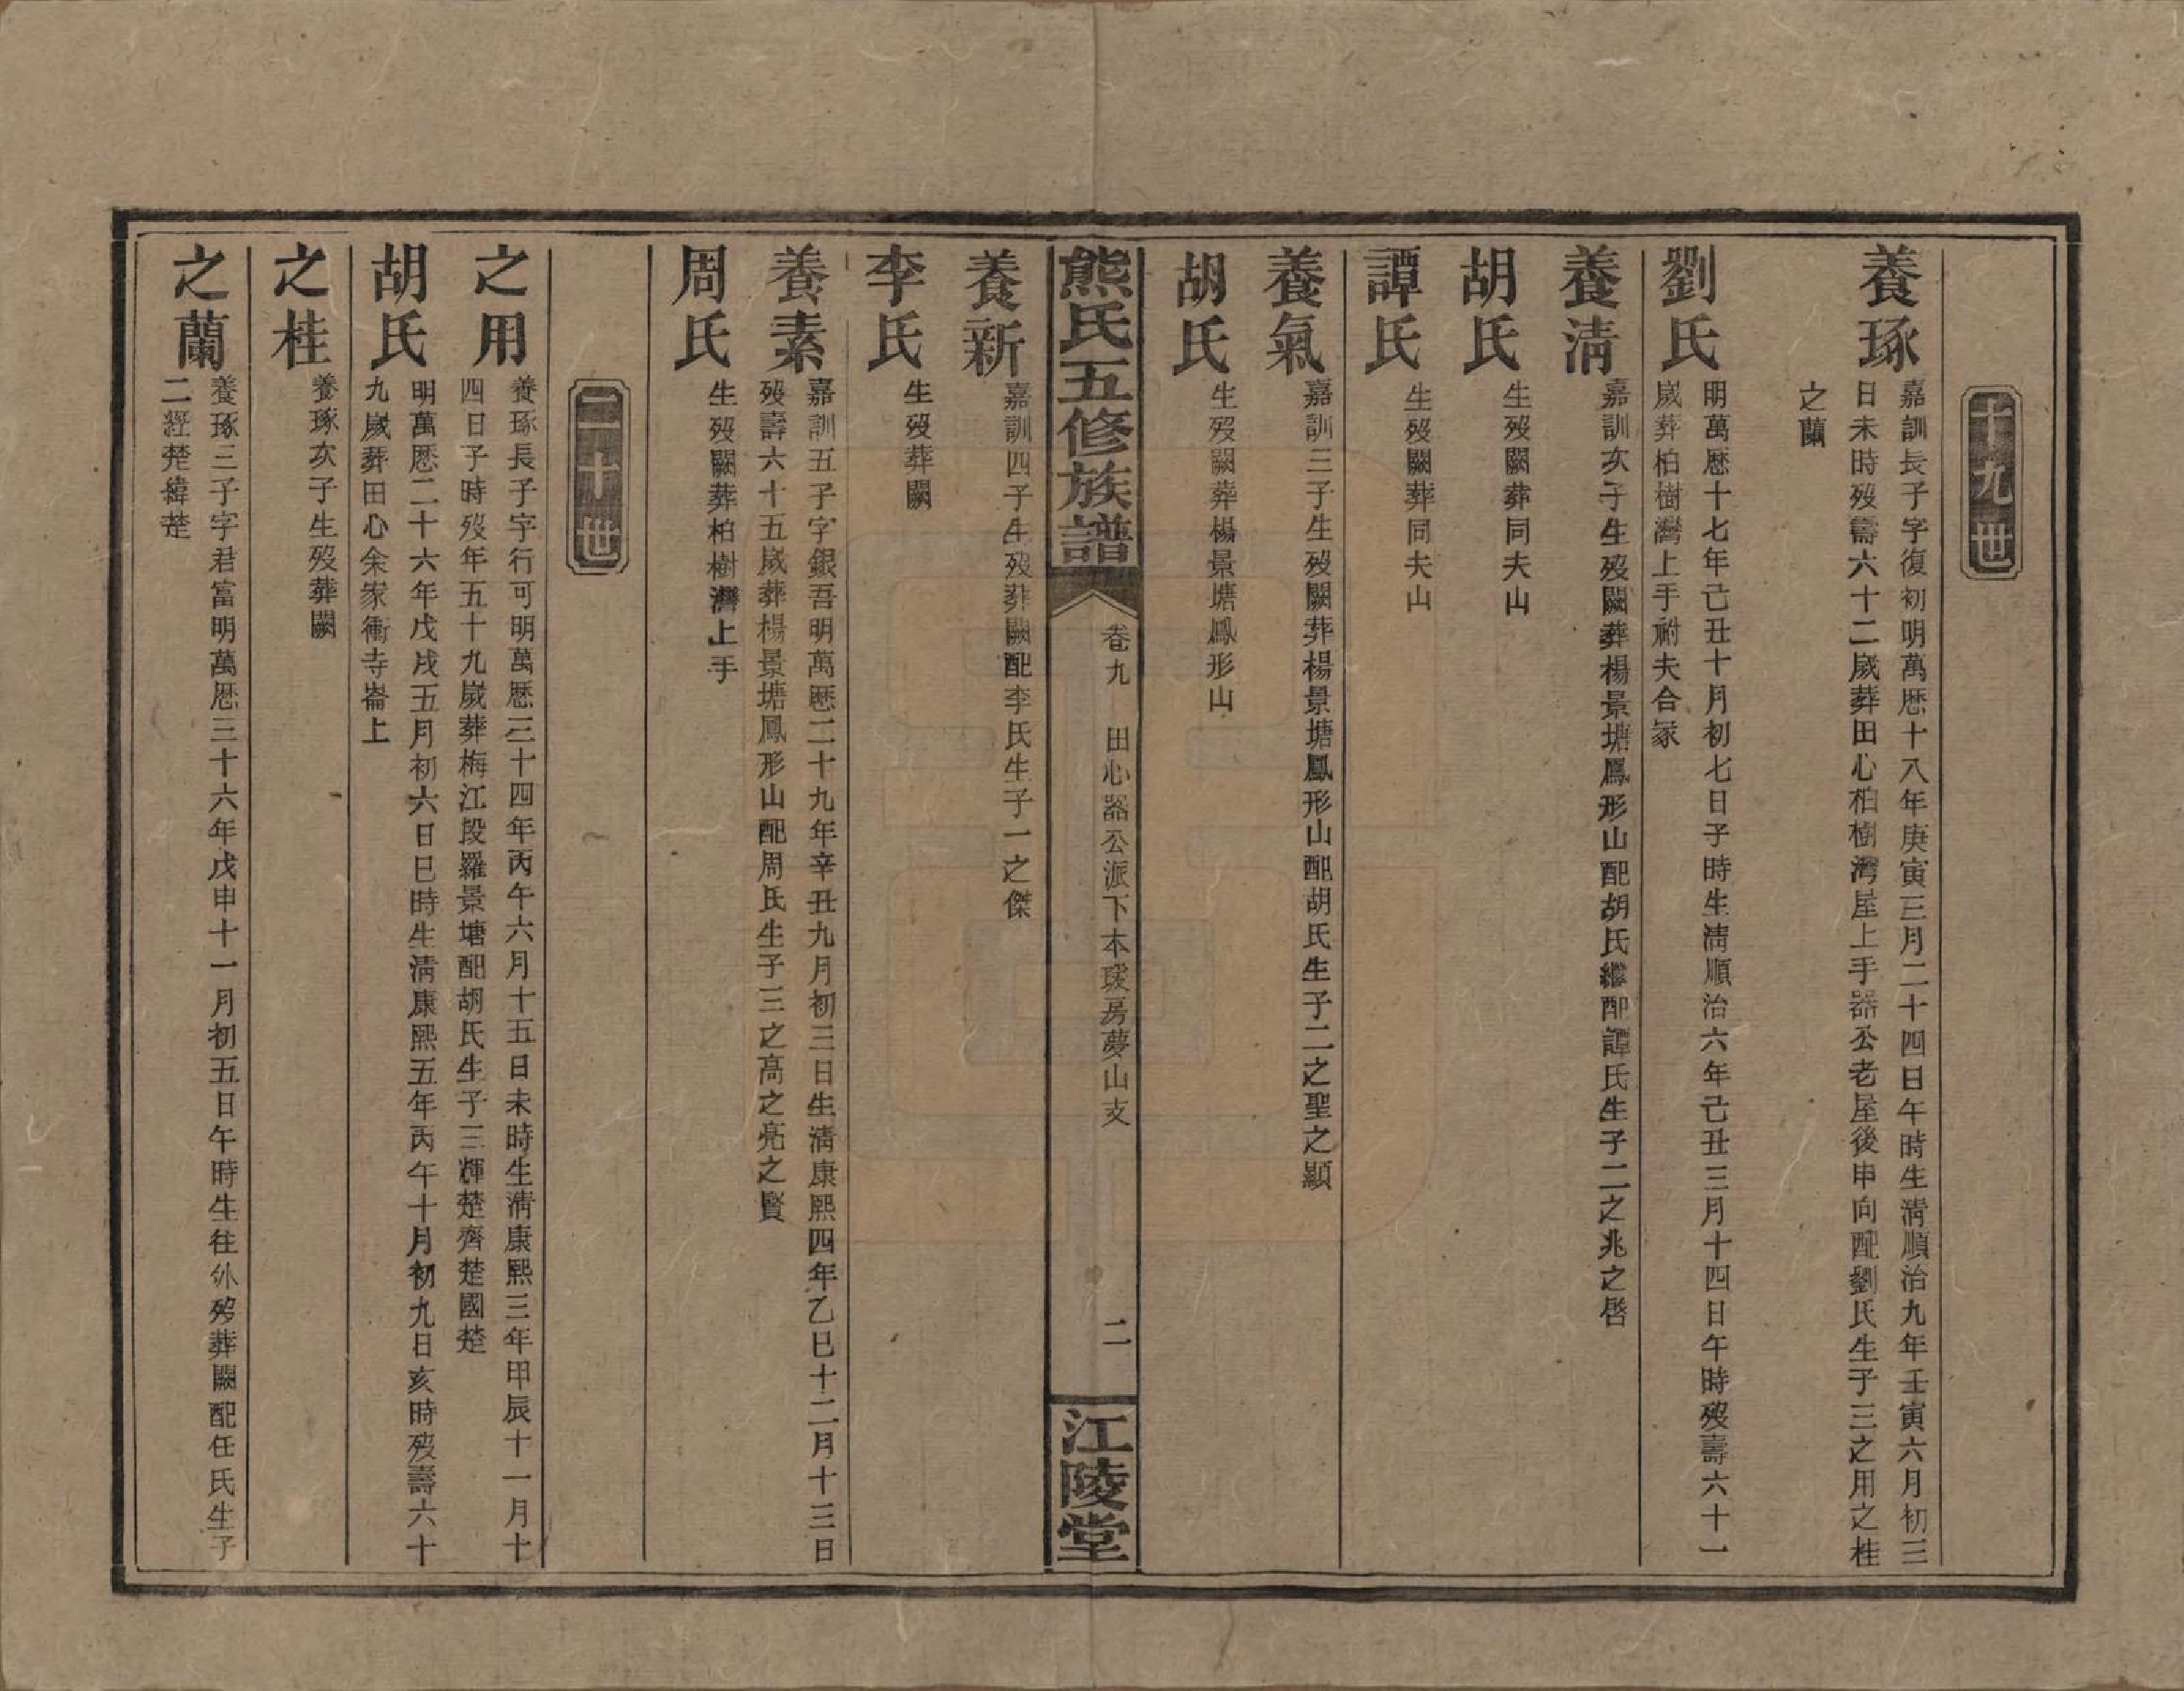 十九世
養琢
嘉訓長子字復初明萬厯十八年庚寅三月二十四日午時生淸順治九年壬寅六月初三
日未時歿壽六十二嵗葬田心柏樹灣屋上手器公老屋後申向配劉氏生子三之用之桂
之蘭
劉氏
明萬厯十七年己丑十月初七日子時生淸順治六年己丑三月十四日午時歿壽六十一
嵗葬柏樹灣上手祔夫合冢
養淸
嘉訓次子生歿闕葬楊景塘鳳形山配胡氏繼配譚氏生子二之兆之啓
胡氏
生歿闕葬同夫山
譚氏
生歿闕葬同夫山
養氣
嘉訓三子生歿闕葬楊景塘鳳形山配胡氏生子二之聖之顯
胡氏
生歿闕葬楊景塘鳳形山
熊氏五修族譜
卷九 田心器公派下本瑗房夢山支
二
江陵堂
養新
嘉訓四子生歿葬闕配李氏生子一之傑
李氏
生歿葬闕
養素
嘉訓五子字銀吾明萬厯二十九年辛丑九月初三日生淸康熙四年乙巳十二月十三日
歿壽六十五嵗葬楊景塘鳳形山配周氏生子三之高之亮之賢
周氏
生歿闕葬柏樹灣上手
二十世
之用
養琢長子字行可明萬厯三十四年丙午六月十五日未時生淸康熙三年甲辰十一月十
四日子時歿年五十九嵗葬梅江段羅景塘配胡氏生子三輝楚齊楚國楚
胡氏
明萬厯二十六年戊戌五月初六日巳時生淸康熙五年丙午十月初九日亥時歿壽六十
九嵗葬田心余家衝寺崙上
之桂
養琢次子生歿葬闕
之蘭
養琢三子字君富明萬厯三十六年戊申十一月初五日午時生往外歿葬闕配任氏生子
二經楚緯楚